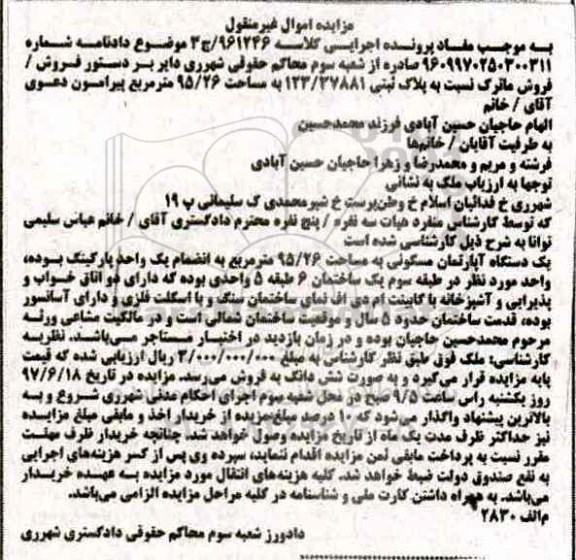 مزایده اموال غیرمنقول
به موجب مفاد پرونده اجرایی کلاسه ۹۶۱۲۴۶/ج۳ موضوع دادنامه شماره
۹۶۰۹۹۷۰۲۵۰۳۰۰۳۱۱ صادره از شعبه سوم محاکم حقوقی شهرری دایر بر دستور فروش /
فروش ماترک نسبت به پلاک ثبتی ۱۲۳/۳۷۸۸۱ به مساحت ۹۵/۲۶ مترمربع پیرامون دعوی
آقای / خانم
الهام حاجیان حسین آبادی فرزند محمدحسین
به طرفیت آقایان / خانم‌ها
فرشته و مریم و محمدرضا و زهرا حاجیان حسین آبادی
توجها به ارزیاب ملک به نشانی
شهرری خ فدائیان اسلام خ وطن‌پرست خ شیرمحمدی ک سلیمانی پ ۱۹
که توسط کارشناس منفرد هیات سه نفره / پنج نفره محترم دادگستری آقای / خانم عباس سلیمی
توانا به شرح ذیل کارشناسی شده است
یک دستگاه آپارتمان مسکونی به مساحت ۹۵/۲۶ مترمربع به انضمام یک واحد پارکینگ بوده،
واحد مورد نظر در طبقه سوم یک ساختمان ۶ طبقه ۵ واحدی بوده که دارای دو اتاق خواب و
پذیرایی و آشپزخانه با کابینت ام دی اف نمای ساختمان سنگ و با اسکلت فلزی و دارای آسانسور
بوده، قدمت ساختمان حدود ۵ سال و موقعیت ساختمان شمالی است و در مالکیت مشاعی ورثه
مرحوم محمدحسین حاجیان بوده و در زمان بازدید در اختیار مستاجر می‌باشد. نظریه
کارشناسی: ملک فوق طبق نظر کارشناس به مبلغ ۳/۰۰۰/۰۰۰/۰۰۰ ریال ارزیابی شده که قیمت
پایه مزایده قرار می‌گیرد و به صورت شش دانگ به فروش می‌رسد. مزایده در تاریخ ۹۷/۶/۱۸
روز یکشنبه راس ساعت ۹/۵ صبح در محل شعبه سوم اجرای احکام مدنی شهرری شروع و به
بالاترین پیشنهاد واگذار می‌شود که ۱۰ درصد مبلغ مزبده از خریدار اخذ و مابقی مبلغ مزایده
نیز حداکثر ظرف مدت یک ماه از تاریخ مزایده وصول خواهد شد. چنانچه خریدار ظرف مهلت
مقرر نسبت به پرداخت مابقی ثمن مزایده اقدام ننماید، سپرده وی پس از کسر هزینه‌های اجرایی
به نفع صندوق دولت ضبط خواهد شد. کلیه هزینه‌های انتقال مورد مزایده به عهده خریدار
می‌باشد. به همراه داشتن کارت ملی و شناسنامه در کلیه مراحل مزایده الزامی می‌باشد.
م‌الف ۲۸۳۰
دادورز شعبه سوم محاکم حقوقی دادگستری شهرری